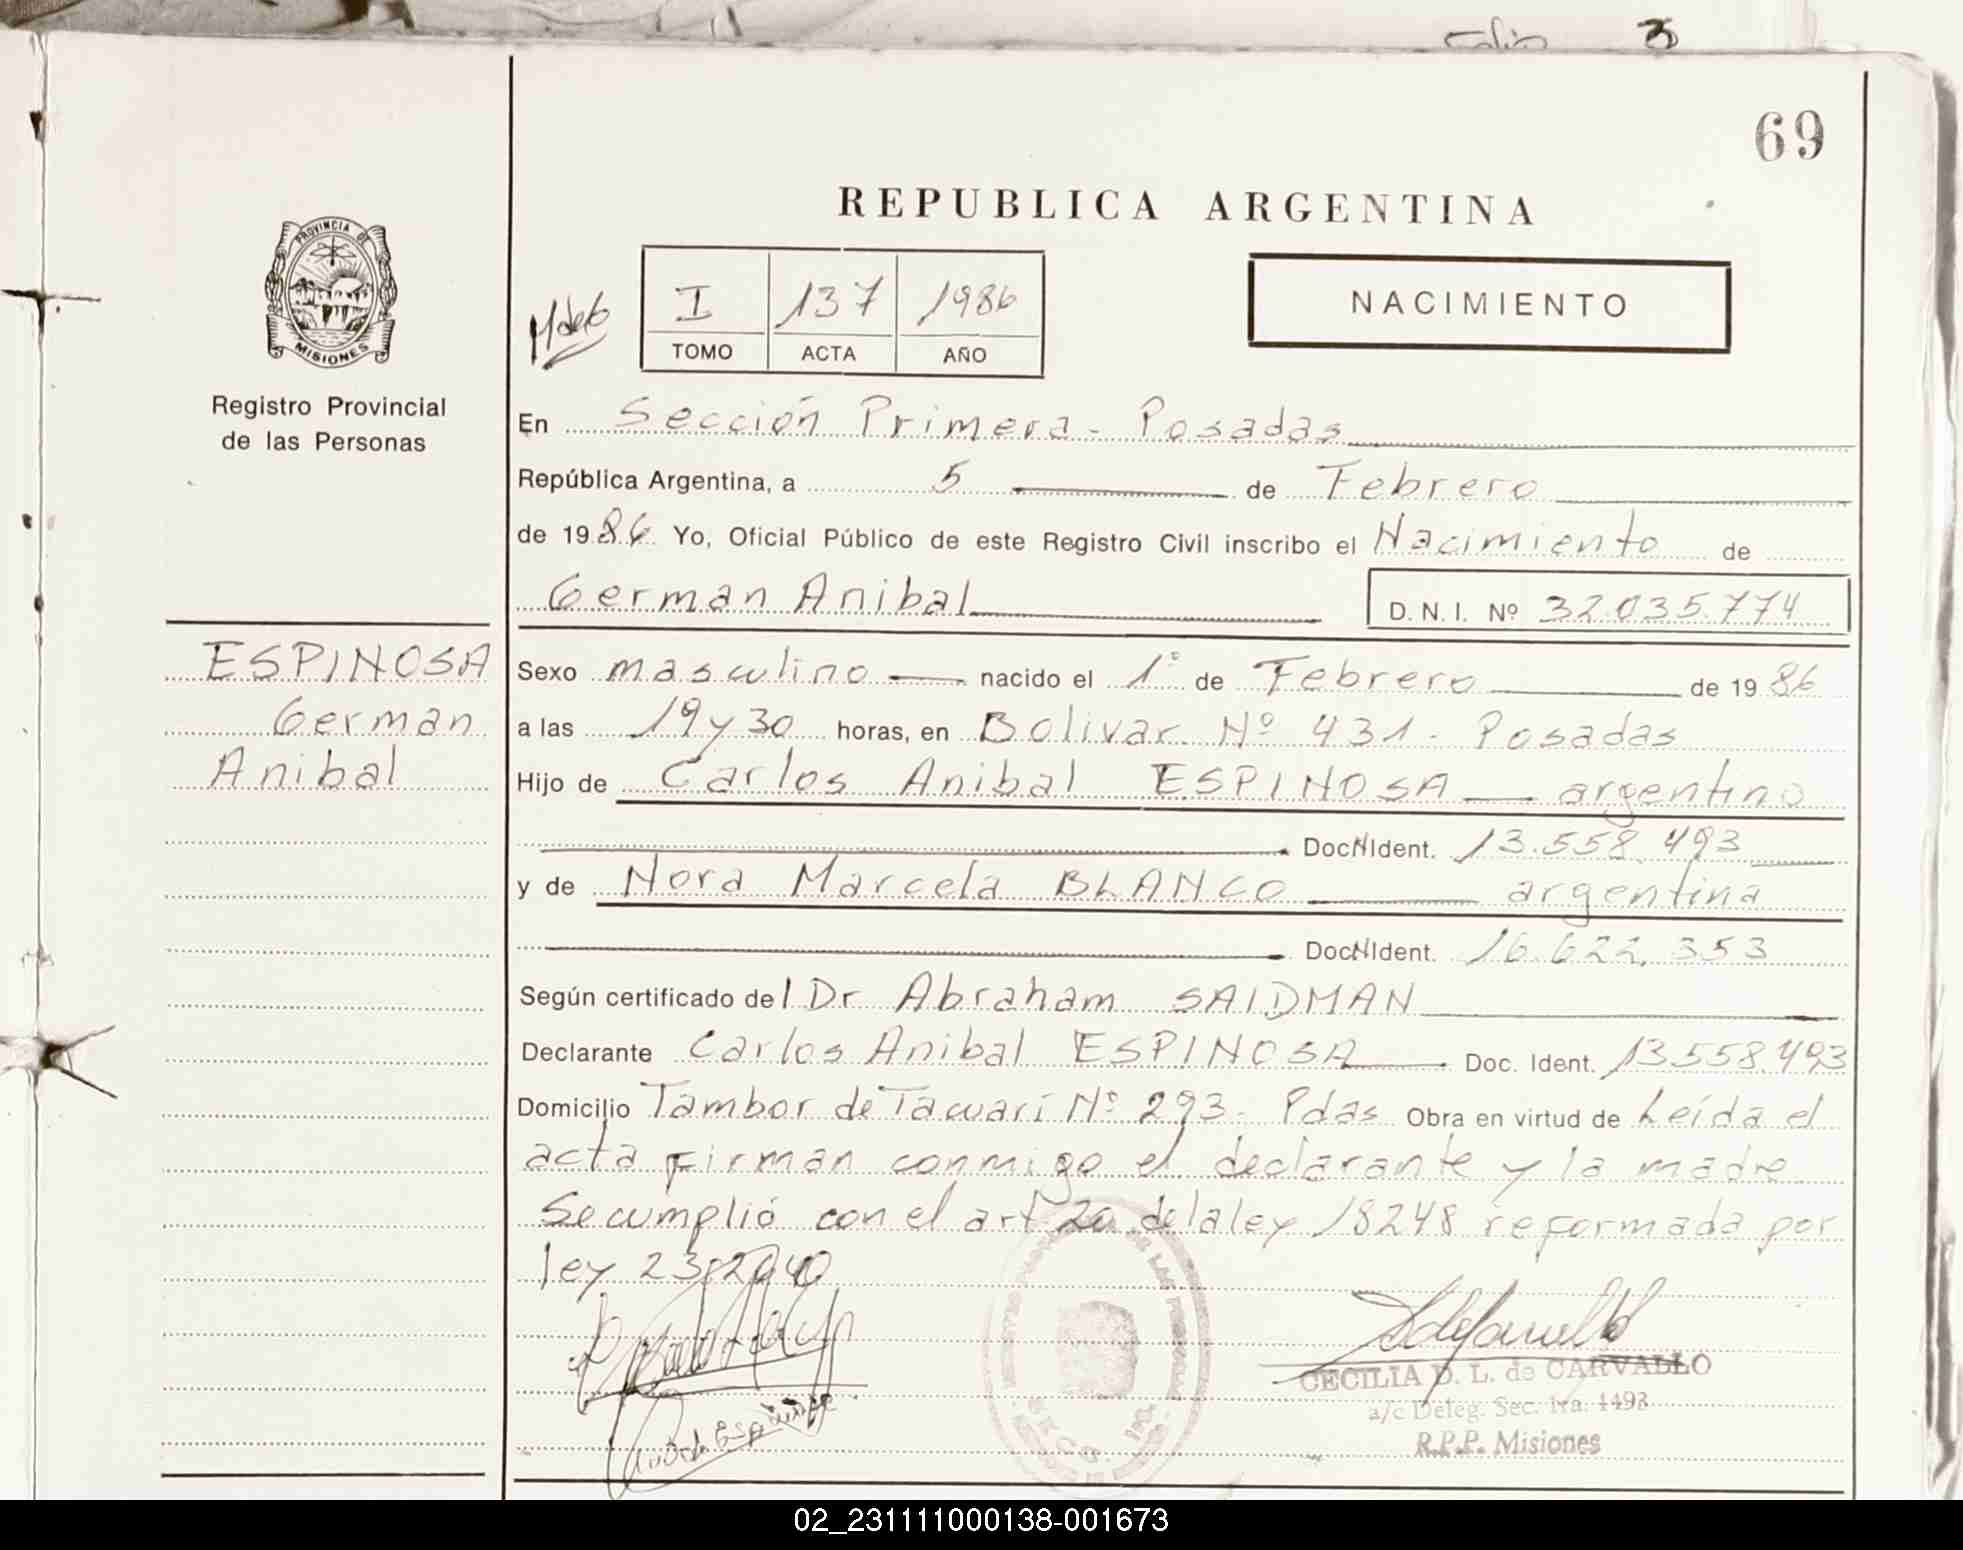 Folio 3
69
REPUBLICA ARGENTINA
PROVINCIA DE
MISIONES
Registro Provincial
de las Personas
I 137 1986
TOMO ACTA AÑO
NACIMIENTO
En Sección Primera - Posadas
República Argentina, a 5 de Febrero
de 1986 Yo, Oficial Público de este Registro Civil inscribo el Nacimiento de
German Anibal D.N.I. Nº 32.035.774
ESPINOSA
German
Anibal
Sexo masculino nacido el 1º de Febrero de 1986
a las 19 y 30 horas, en Bolivar Nº 431 - Posadas
Hijo de Carlos Anibal ESPINOSA argentino
Doc N Ident. 13.558.493
y de Nora Marcela BLANCO argentina
Doc N Ident. 16.622.353
Según certificado del Dr Abraham SAIDMAN
Declarante Carlos Anibal ESPINOSA Doc. Ident. 13.558.493
Domicilio Tambor de Tacuarí Nº 293 - Pdas Obra en virtud de Leída el
acta firman conmigo el declarante y la madre
Se cumplió con el art 2a de la ley 18248 reformada por
ley
CECILIA D. L. de CARVALLO
a/c Deleg. Sec. 1ra. 1493
R.P.P. Misiones
02_231111000138-001673